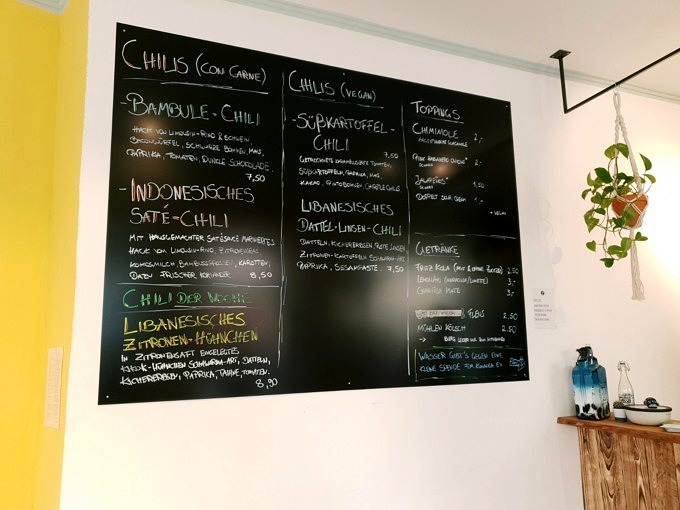 CHILIS (CON CARNE)
- BAMBULE - CHILI
HACK VOM LIMOUSIN-RIND & SCHWEIN,
BACONWÜRFEL, SCHWARZE BOHNEN, MAIS,
PAPRIKA, TOMATEN, DUNKLE SCHOKOLADE.
7,50
- INDONESISCHES
SATÉ - CHILI
MIT HAUSGEMACHTER SATÉSAUCE MARINIERTES
HACK VOM LIMOUSIN-RIND, ZITRONENGRAS,
KOKOSMILCH, BAMBUSSPROSSEN, KAROTTEN,
DAZU FRISCHER KORIANDER. 8,50
CHILI DER WOCHE
LIBANESISCHES
ZITRONEN-HÜHNCHEN
IN ZITRONENSAFT EINGELEGTES
HÜHNCHEN SCHAWARMA-ART, DATTELN,
KICHERERBSEN, PAPRIKA, TAHINE, TOMATEN.
8,90
CHILIS (VEGAN)
- SÜßKARTOFFEL -
CHILI 7,50
GETROCKNETE TOMATEN,
SÜßKARTOFFELN, PAPRIKA, MAIS,
KAKAO, PINTOBOHNEN, CHIPOTLE CHILIS.
LIBANESISCHES
DATTEL-LINSEN-CHILI
DATTELN, KICHERERBSEN, ROTE LINSEN,
ZITRONEN-KARTOFFELN SCHAWARMA-ART
PAPRIKA, SESAMPASTE. 7,50
TOPPINGS
CHIMIMOLE 2,-
GUACAMOLE
PINK HABANERO ONIONS* 2,-
SCHARF
JALAPEÑOS* 1,50
SCHARF
SOUR CREAM 1,-
* VEGAN
GETRÄNKE
FRITZ KOLA (MIT & OHNE ZUCKER) 2,50
LEMONAID (MARACUJA/LIMETTE) 3,-
MATE 3,-
FLENS 2,50
MÜHLEN KÖLSCH 2,50
→ BIERE LEIDER NUR ZUM MITNEHMEN
WASSER GIBT'S GEGEN EINE
KLEINE SPENDE FÜR EV.